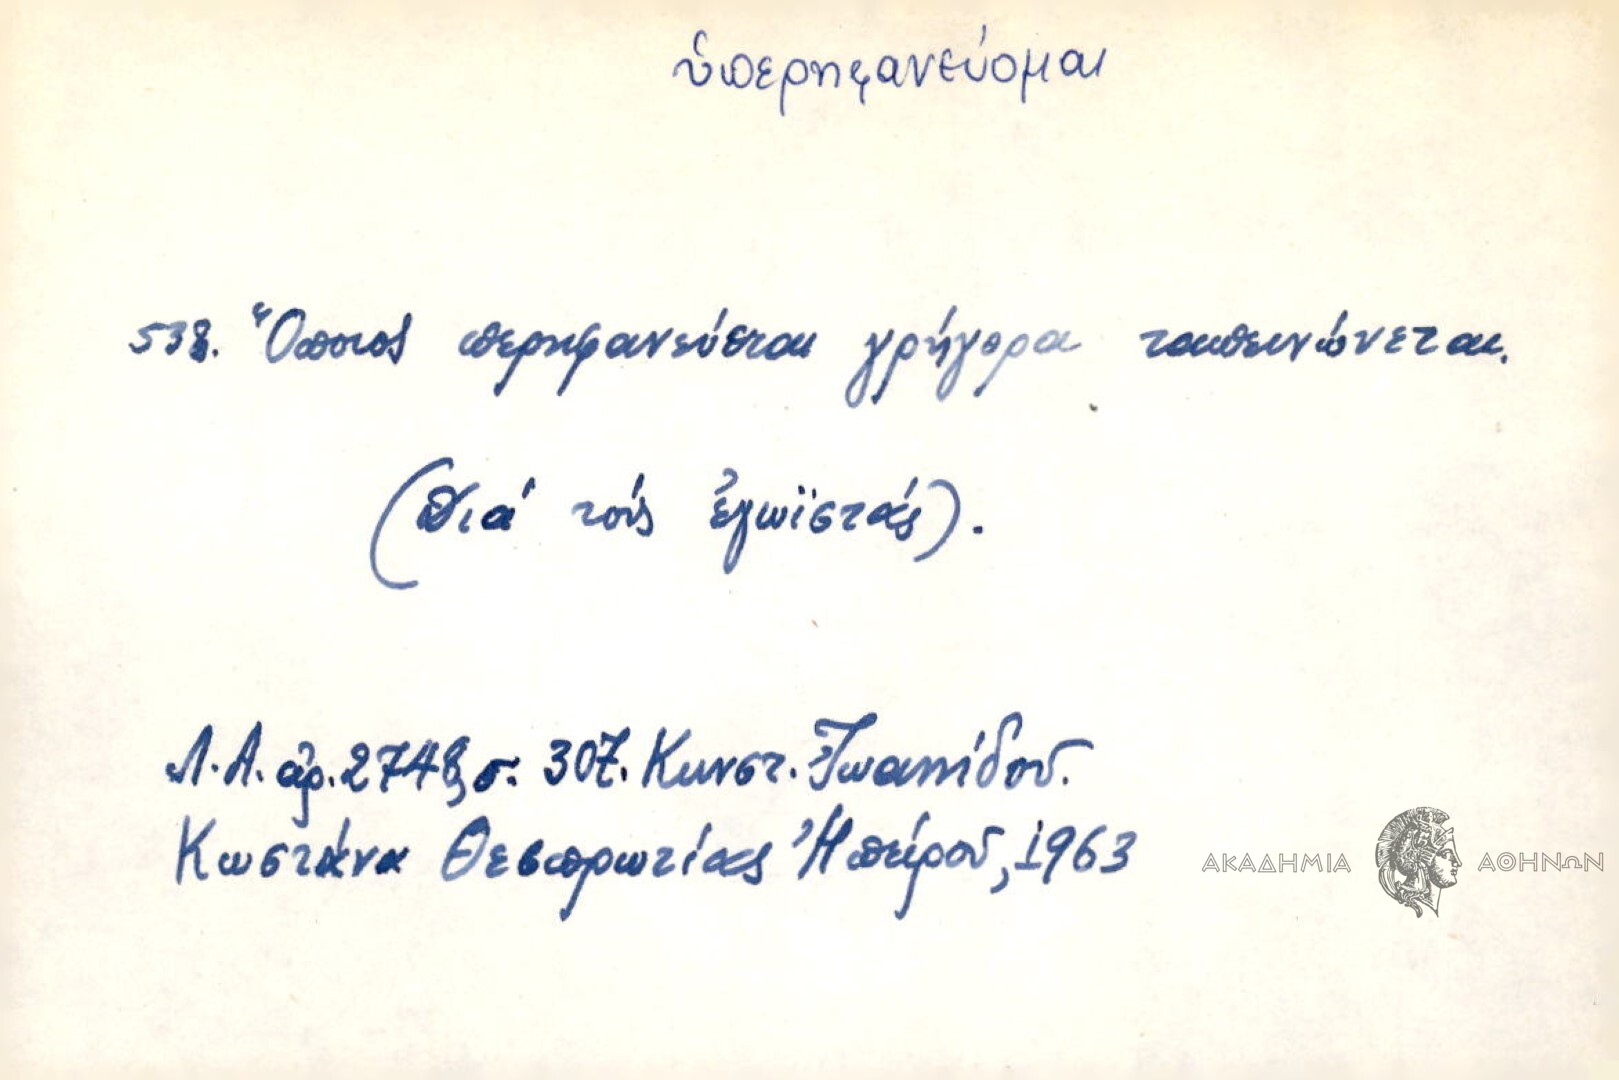 ὑπερηφανεύομαι
538. Ὅποιος περηφανεύεται γρήγορα ταπεινώνεται.
(Διά τούς ἐγωϊστάς).
Λ.Α. ἀρ. 2748, σ. 307. Κωνστ. Ἰωαννίδου.
Κωστάνα Θεσπρωτίας Ἠπείρου, 1963
ΑΚΑΔΗΜΙΑ ΑΘΗΝΩΝ